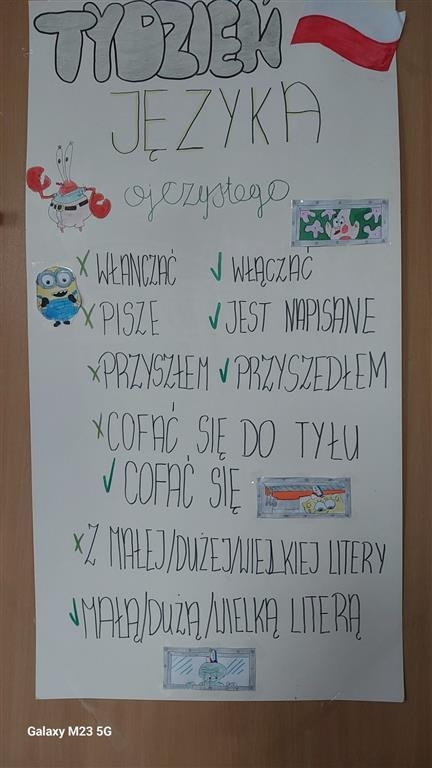 TYDZIEŃ
JĘZYKA
ojczystego
x WŁANCZAĆ ✓ WŁĄCZAĆ
x PISZE ✓ JEST NAPISANE
x PRZYSZŁEM ✓ PRZYSZEDŁEM
x COFAĆ SIĘ DO TYŁU
✓ COFAĆ SIĘ
x Z MAŁEJ/DUŻEJ/WIELKIEJ LITERY
✓ MAŁĄ/DUŻĄ/WIELKĄ LITERĄ
Galaxy M23 5G